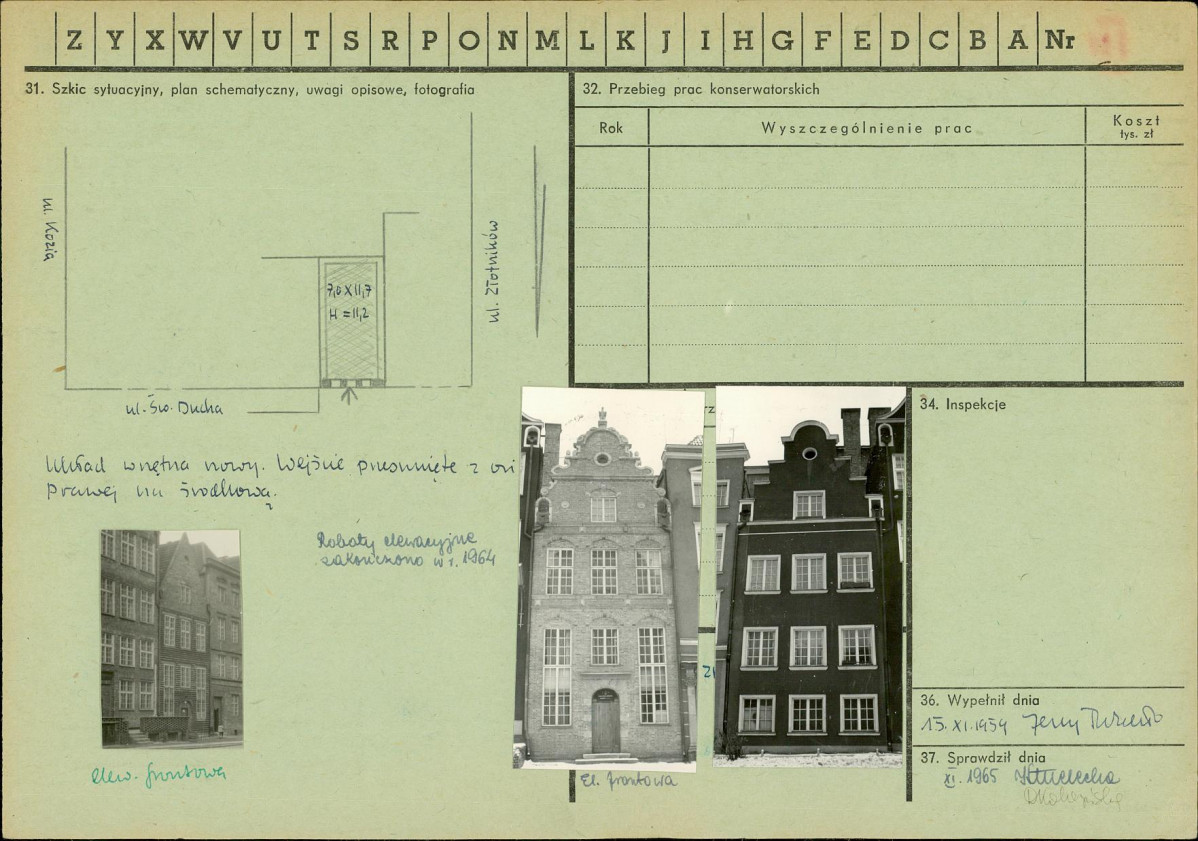 Z Y X W V U T S R P O N M L K J I H G F E D C B A Nr
31. Szkic sytuacyjny, plan schematyczny, uwagi opisowe, fotografia
ul. Kozia
ul. Złotników
7,0 X 11,7
H = 11,2
ul. Św. Ducha
Układ wnętrza nowy. Wejście przesunięte z osi
prawej na środkową.
Roboty elewacyjne
zakończono w r. 1964
elew. frontowa
El. frontowa
32. Przebieg prac konserwatorskich
Rok Wyszczególnienie prac Koszt
tys. zł
rz
34. Inspekcje
36. Wypełnił dnia
15. XI. 1959 Jerzy
37. Sprawdził dnia
XI. 1965